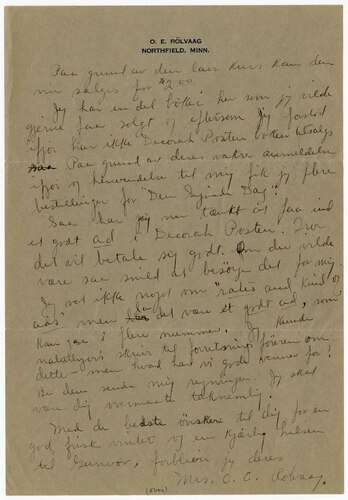 O. E. RÖLVAAG
NORTHFIELD, MINN.
Paa grund av den lave kurs, kan den
nu sælges for $2.00
Jeg har en del bøker her som jeg vilde
gjerne faa solgt og eftersom jeg forstod
ifjor kan ikke Decorah Posten bøker tilsalgs
Paa grund av deres vakre anmeldelse
ifjor og henvendelse til mig fik jeg flere
bestillinger for "Den Signede Dag".
Saa har jeg nu tænkt at faa ind
et godt ad i Decorah Posten. Tror
det vil betale sig godt. Om du vilde
være saa snild at besørge det for mig.
Jeg vet ikke noget om "rates and kind of
ads" men la det være et godt ad, som
kan i flere nummer. Jeg kunde
naturligvis skrevet til forretningsføreren om
dette – men hvad har vi gode venner for!
Be dem sende mig regningen. Jeg skal
være dig overmaate taknemlig.
Med de bedste ønsker til dig for en
god, frisk vinter og en kjærlig hilsen
til Gunvor, forbliver jeg deres
Mrs. O. E. Rolvaag.
(over)